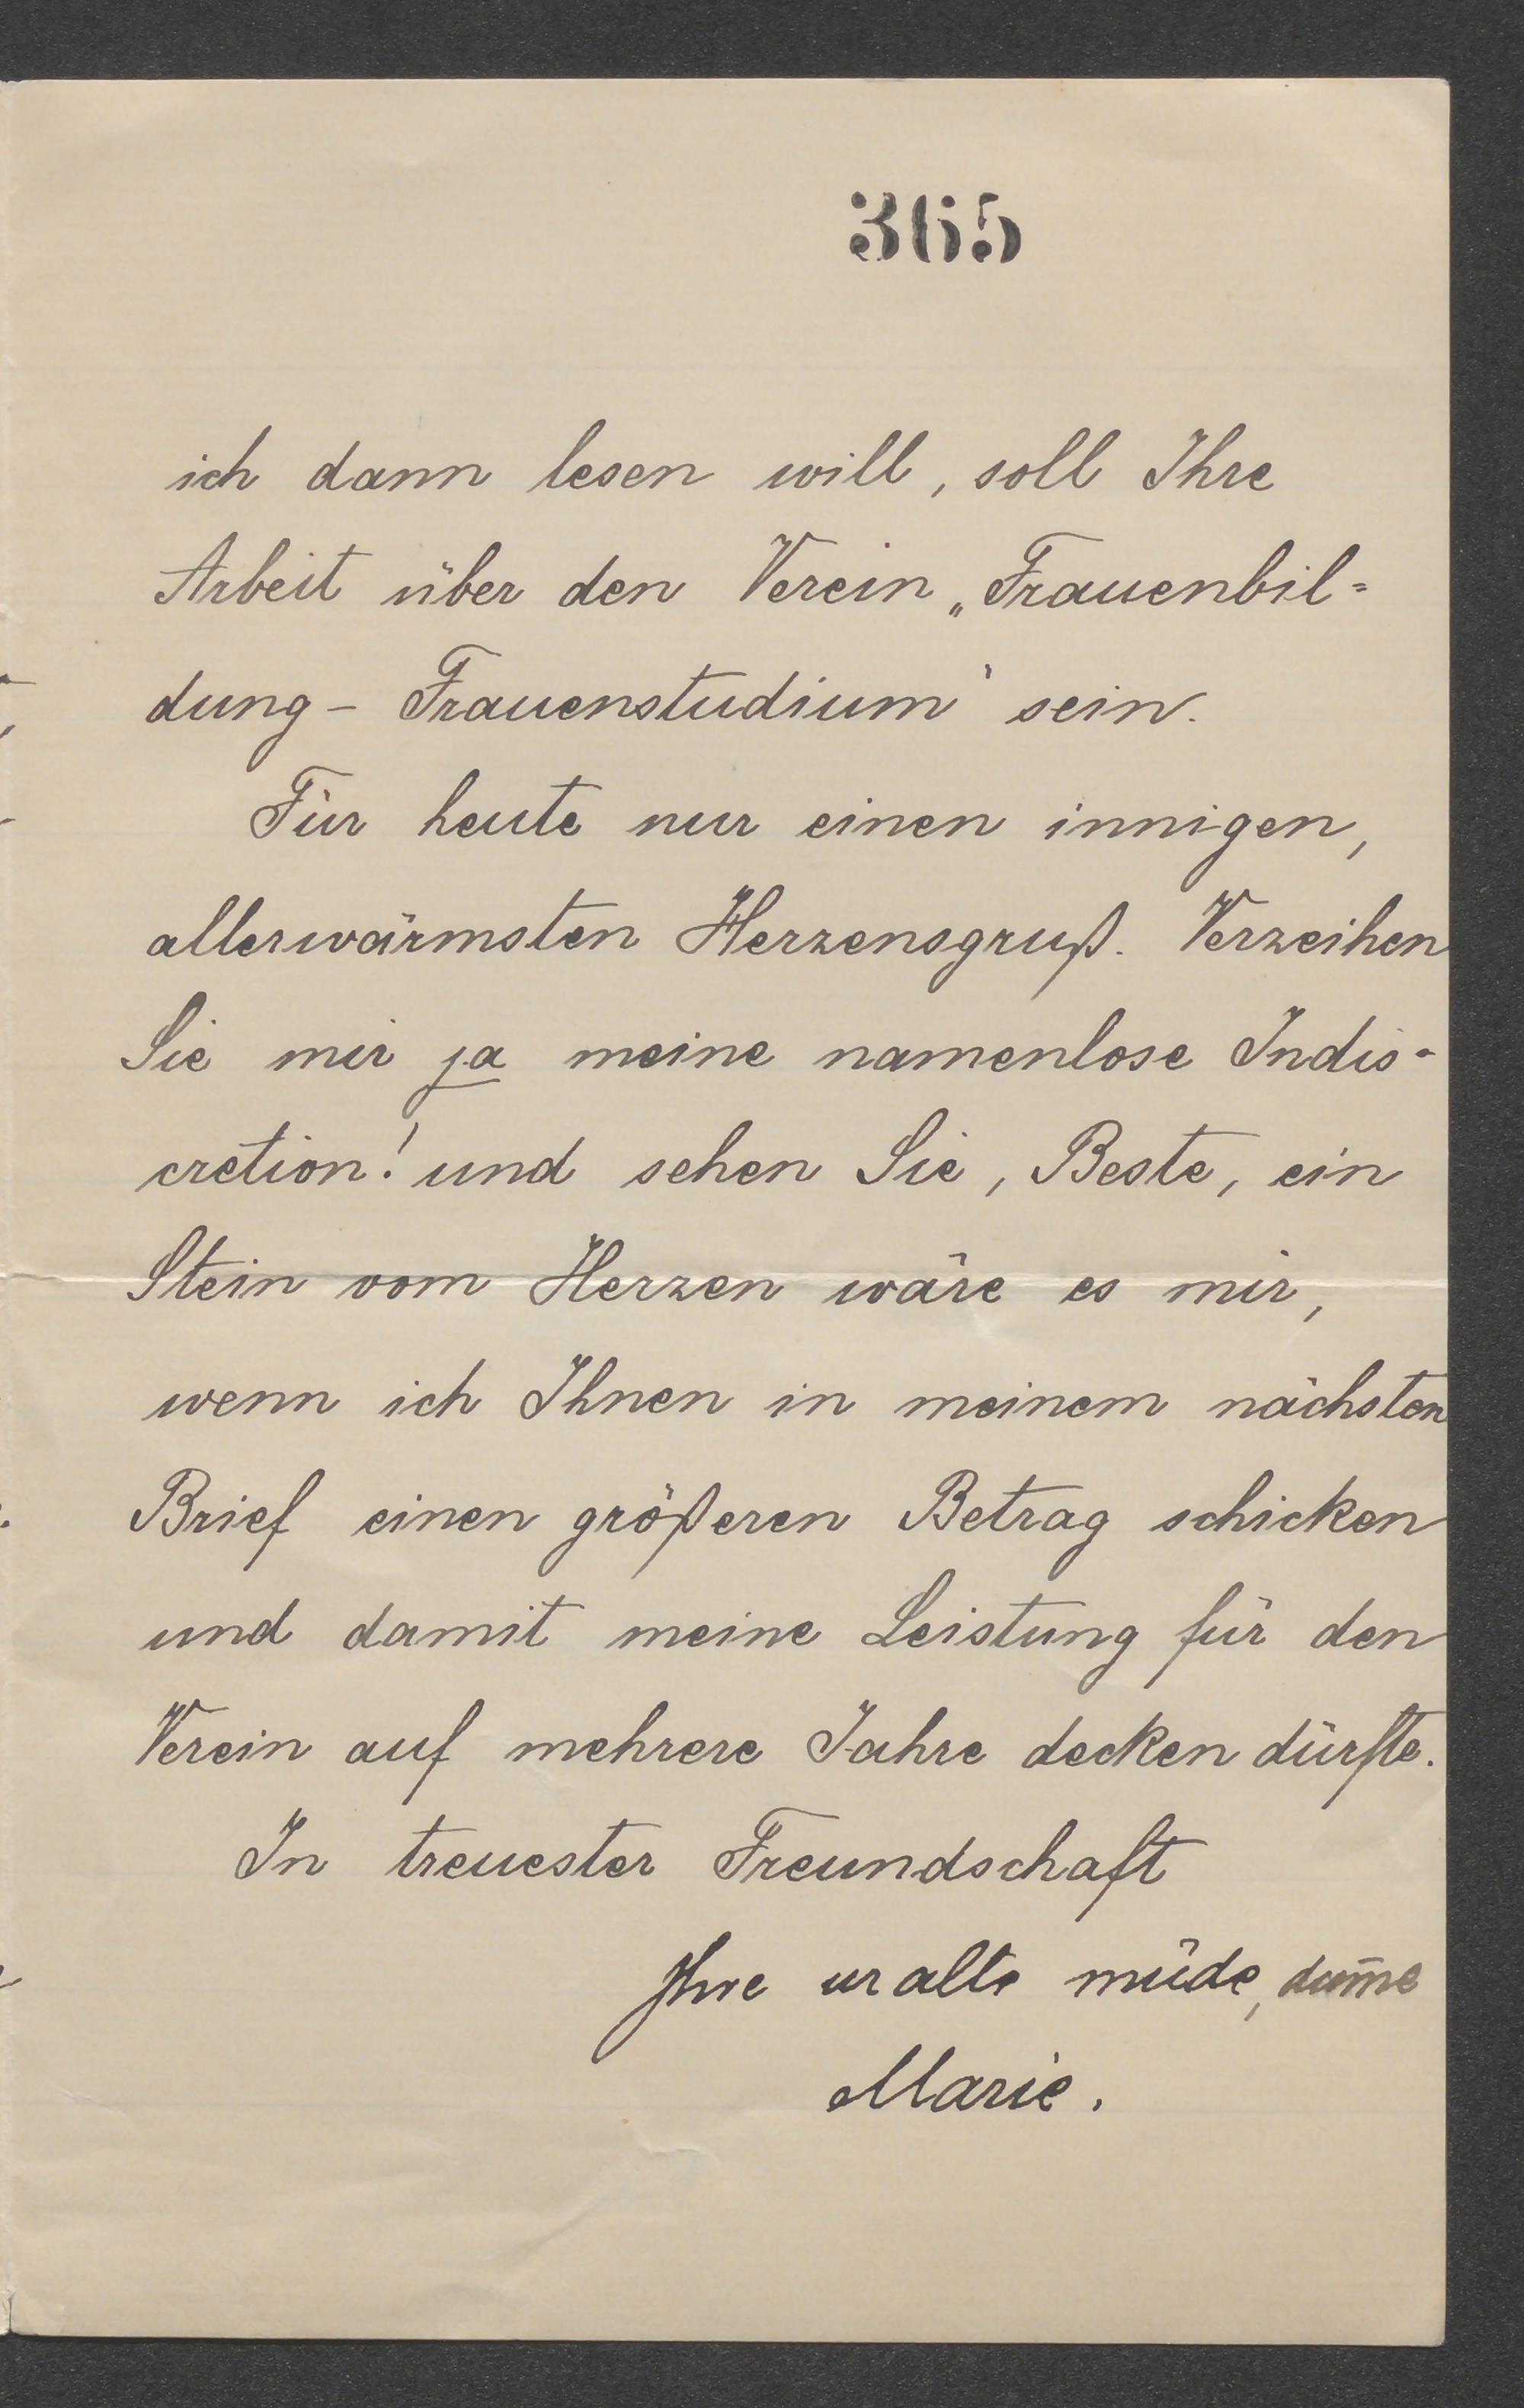 365
ich dann lesen will, soll Ihre
Arbeit über den Verein „Frauenbil=
dung - Frauenstudium" sein.
Für heute nur einen innigen,
allerwärmsten Herzensgruß. Verzeihen
Sie mir ja meine namenlose Indis-
cretion! und sehen Sie, Beste, ein
Stein vom Herzen wäre es mir,
wenn ich Ihnen in meinem nächsten
Brief einen größeren Betrag schicken
und damit meine Leistung für den
Verein auf mehrere Jahre decken dürfte.
In treuester Freundschaft
Ihre uralte müde, dum̅e
Marie.